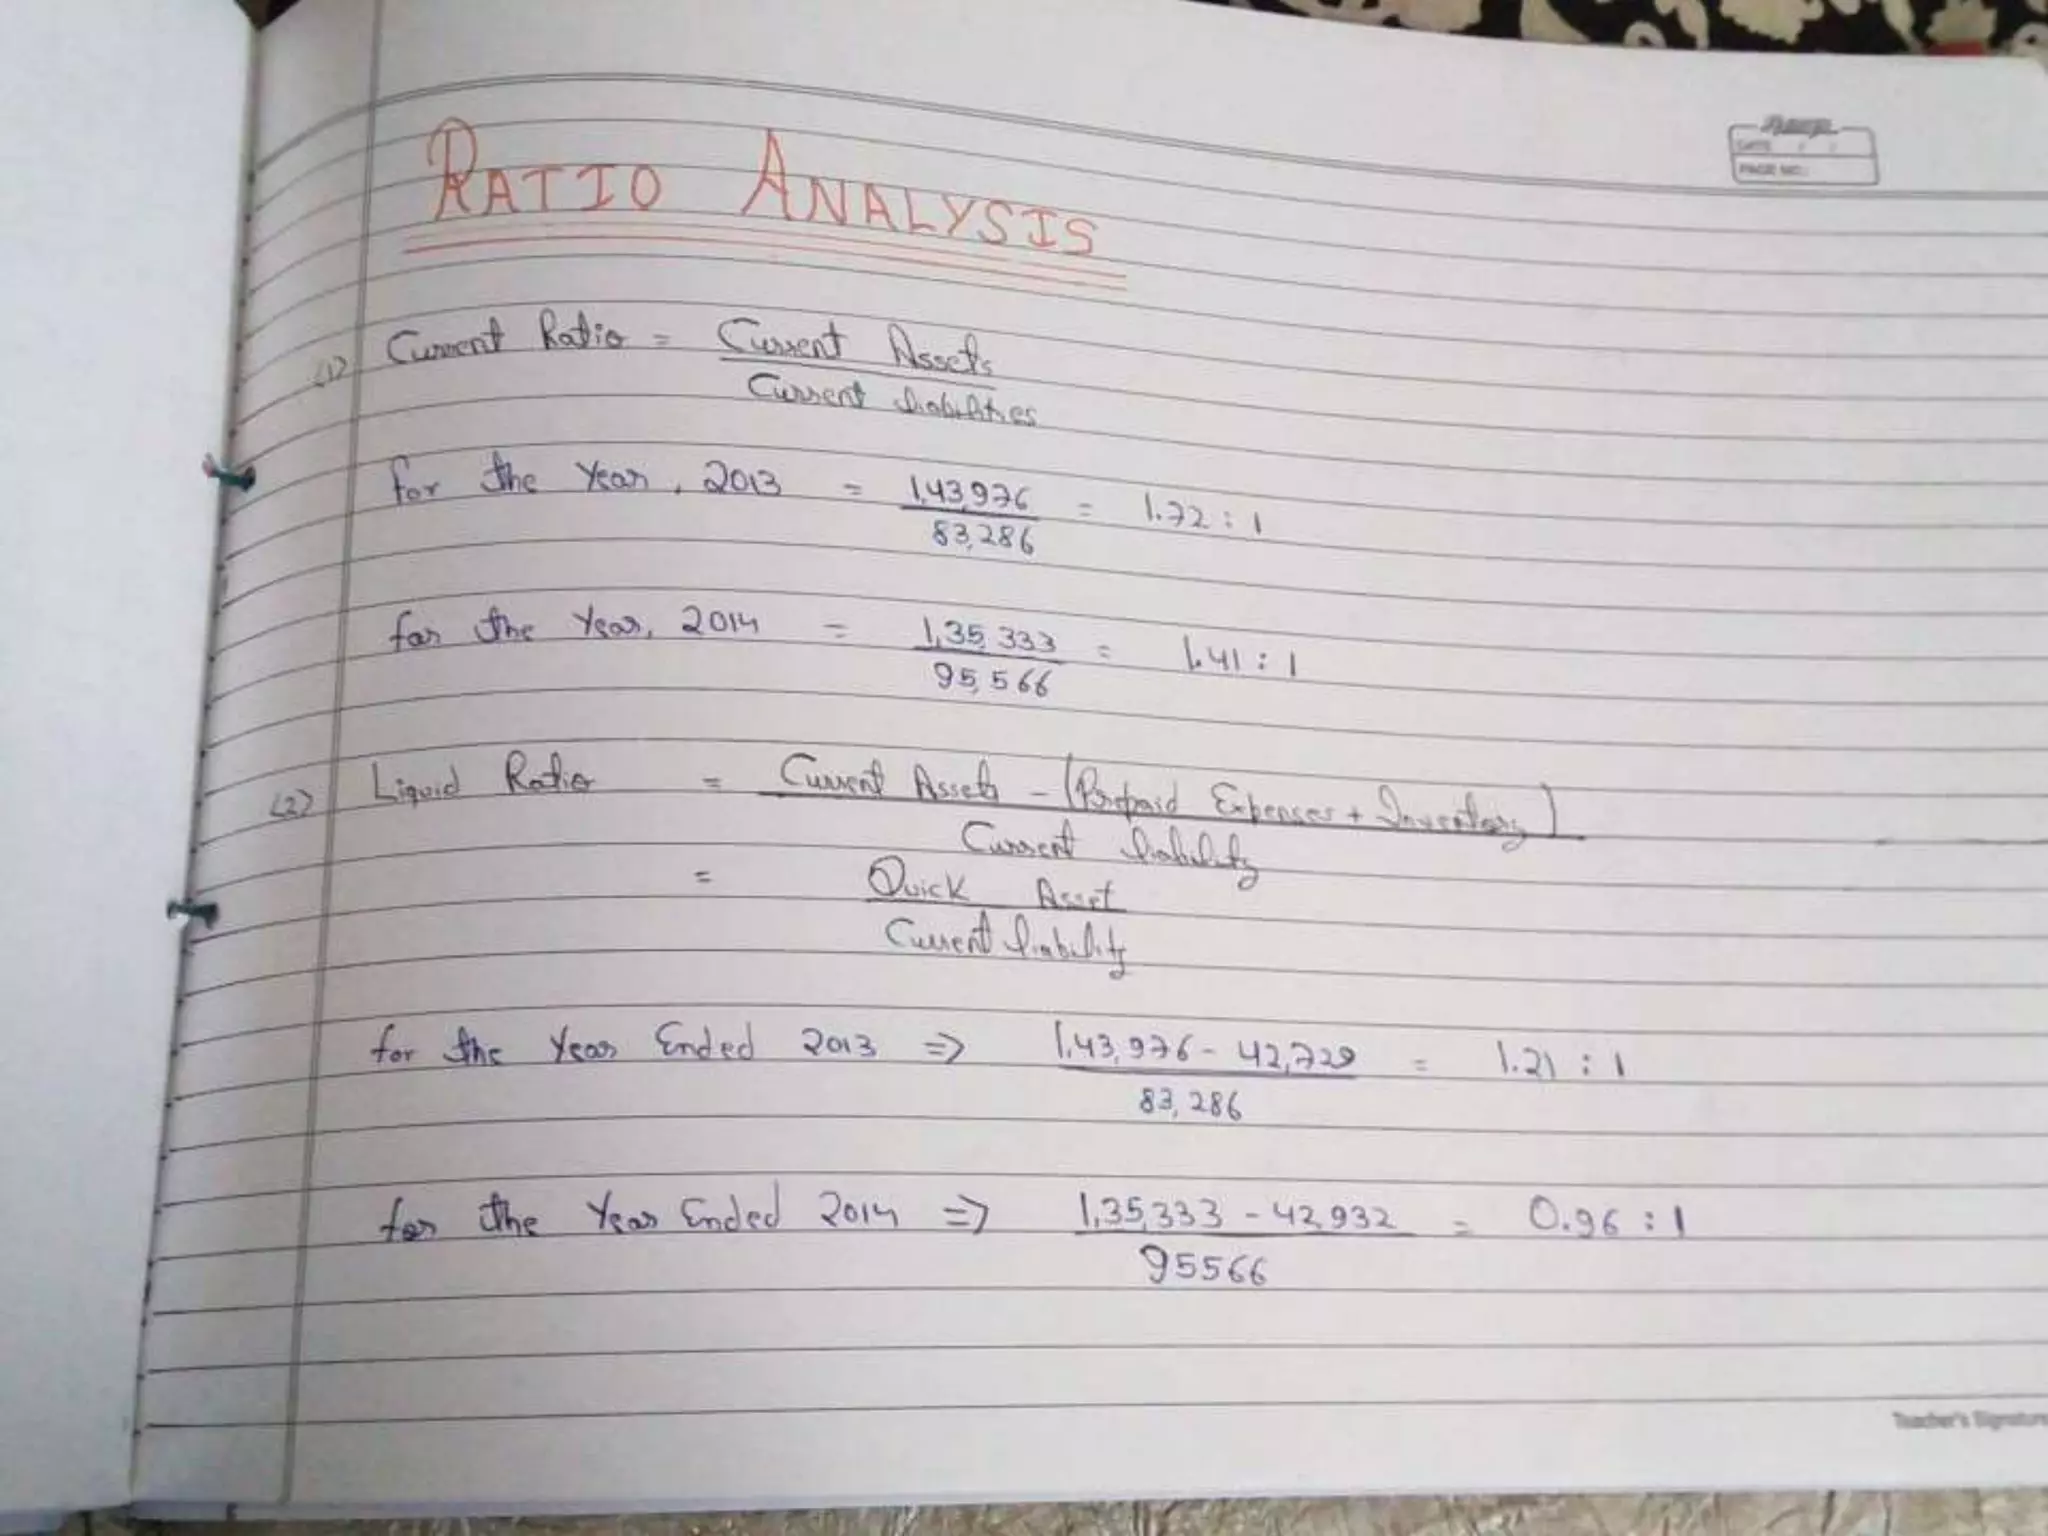 DATE / /
PAGE NO.:
RATIO ANALYSIS
(1) Current Ratio = Current Assets
Current liabilities
for the Year, 2013 = 1,43,976 = 1.72 : 1
83,286
for the Year, 2014 = 1,35,333 = 1.41 : 1
95,566
(2) Liquid Ratio = Current Assets - (Prepaid Expenses + Inventory)
Current liability
= Quick Asset
Current liability
for the Year Ended 2013 => 1,43,976 - 42,729 = 1.21 : 1
83,286
for the Year Ended 2014 => 1,35,333 - 42,932 = 0.96 : 1
95566
Teacher's Signature